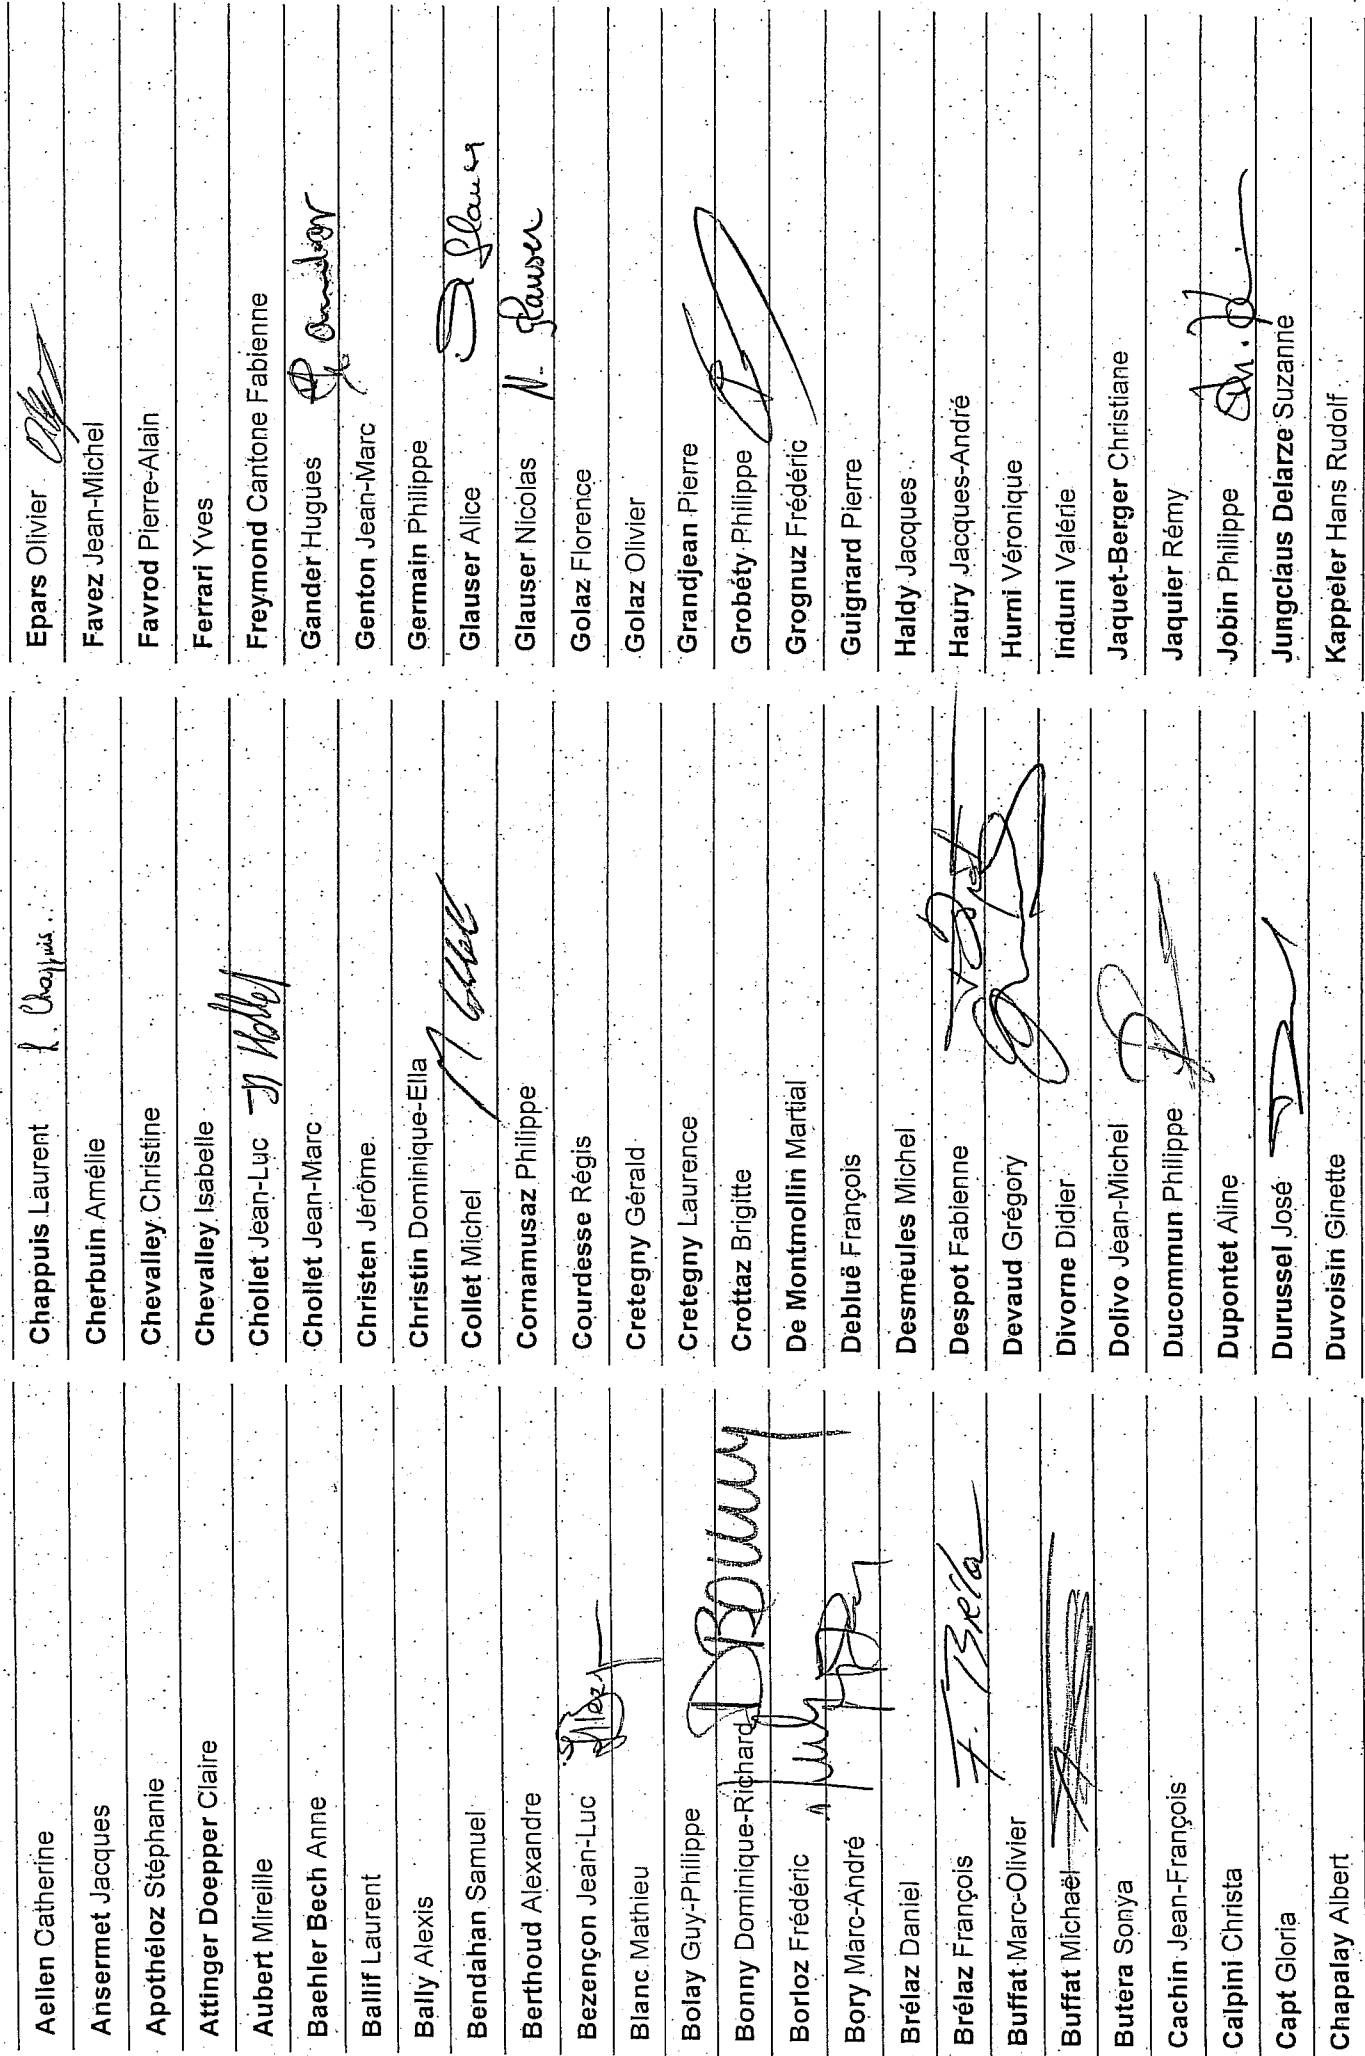 Aellen Catherine
Ansermet Jacques
Apothéloz Stéphanie
Attinger Doepper Claire
Aubert Mireille
Baehler Bech Anne
Ballif Laurent
Bally Alexis
Bendahan Samuel
Berthoud Alexandre
Bezençon Jean-Luc
Blanc Mathieu
Bolay Guy-Philippe
Bonny Dominique-Richard DBonny
Borloz Frédéric
Bory Marc-André
Brélaz Daniel
Brélaz François F. Brélaz
Buffat Marc-Olivier
Buffat Michaël
Butera Sonya
Cachin Jean-François
Calpini Christa
Capt Gloria
Chapalay Albert
Chappuis Laurent L. Chappuis
Cherbuin Amélie
Chevalley Christine
Chevalley Isabelle
Chollet Jean-Luc
Chollet Jean-Marc
Christen Jérôme
Christin Dominique-Ella
Collet Michel
Cornamusaz Philippe
Courdesse Régis
Cretegny Gérald
Cretegny Laurence
Crottaz Brigitte
De Montmollin Martial
Debluë François
Desmeules Michel
Despot Fabienne
Devaud Grégory
Divorne Didier
Dolivo Jean-Michel
Ducommun Philippe
Dupontet Aline
Durussel José
Duvoisin Ginette
Epars Olivier
Favez Jean-Michel
Favrod Pierre-Alain
Ferrari Yves
Freymond Cantone Fabienne
Gander Hugues
Genton Jean-Marc
Germain Philippe
Glauser Alice Glauser
Glauser Nicolas N. Glauser
Golaz Florence
Golaz Olivier
Grandjean Pierre
Grobéty Philippe
Grognuz Frédéric
Guignard Pierre
Haldy Jacques
Haury Jacques-André
Hurni Véronique
Induni Valérie
Jaquet-Berger Christiane
Jaquier Rémy
Jobin Philippe
Jungclaus Delarze Suzanne
Kappeler Hans Rudolf